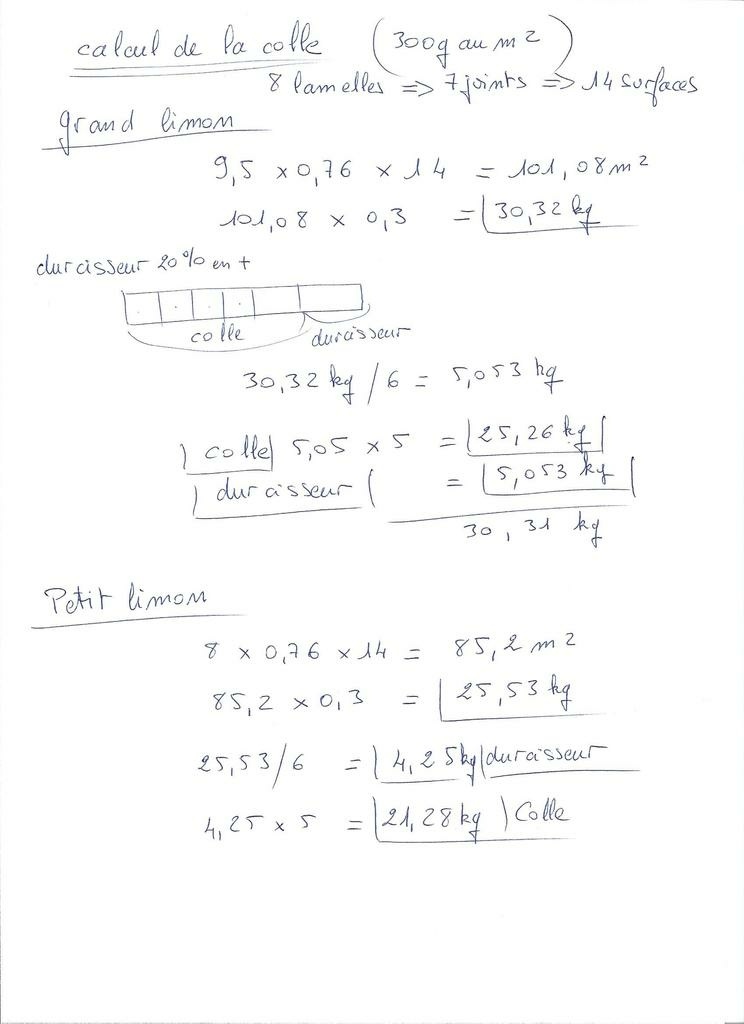 calcul de la colle (300g au m2)
8 lamelles => 7 joints => 14 surfaces
grand limon
9,5 x 0,76 x 14 = 101,08 m2
101,08 x 0,3 = 30,32 kg
durcisseur 20% en +
colle durcisseur
30,32 kg / 6 = 5,053 kg
colle 5,05 x 5 = 25,26 kg
durcisseur = 5,053 kg
30,31 kg
Petit limon
8 x 0,76 x 14 = 85,2 m2
85,2 x 0,3 = 25,53 kg
25,53/6 = 4,25 kg durcisseur
4,25 x 5 = 21,28 kg Colle